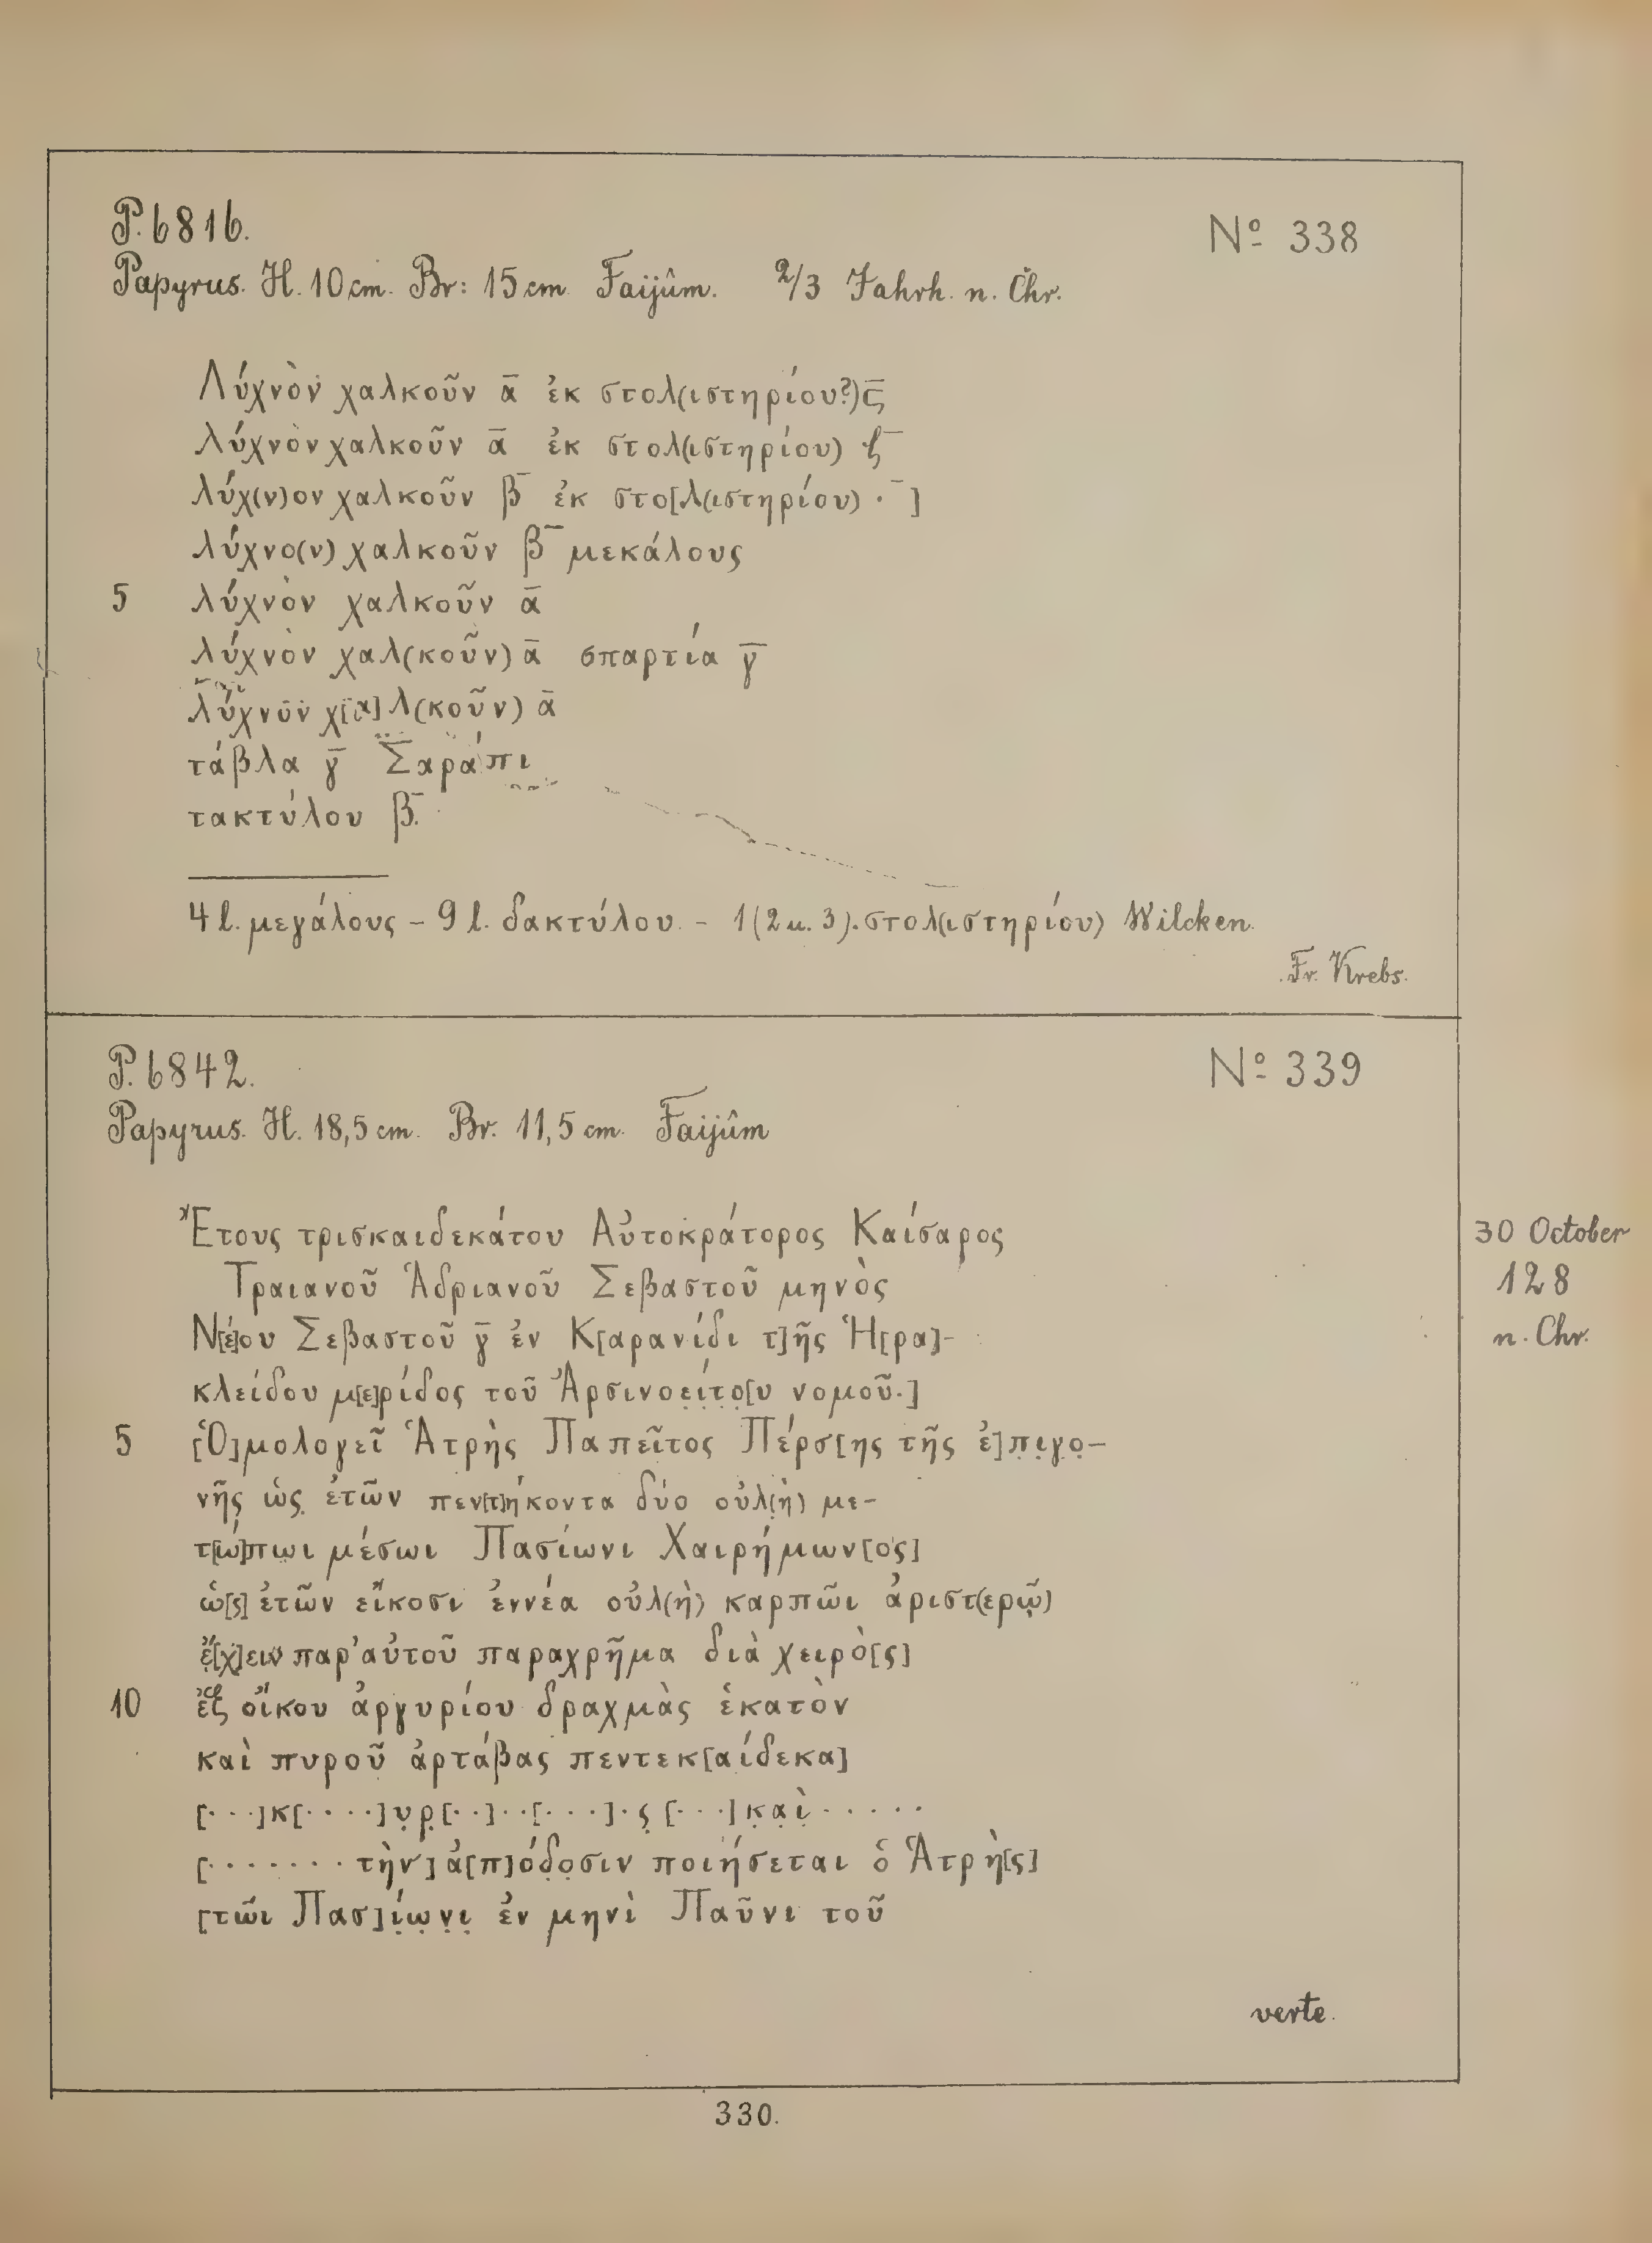 P. 6816.
Nº 338
Papyrus. H. 10 cm. Br: 15 cm. Faijûm. 2/3 Jahrh. n. Chr.
Λύχνον χαλκοῦν ᾱ ἐκ στολ(ιστηρίου?) ϛ̄
λύχνον χαλκοῦν ᾱ ἐκ στολ(ιστηρίου) ζ̄
λύχ(ν)ον χαλκοῦν β̄ ἐκ στο[λ(ιστηρίου) ·̄ ]
λύχνο(ν) χαλκοῦν β̄ μεκάλους
5 λύχνον χαλκοῦν ᾱ
λύχνον χαλ(κοῦν) ᾱ σπαρτία γ̄
λύχνον χ[α]λ(κοῦν) ᾱ
τάβλα γ̄ Σαράπι
τακτύλου β̄.
4 l. μεγάλους – 9 l. δακτύλου. – 1 (2 u. 3). στολ(ιστηρίου) Wilcken.
Fr. Krebs.
P. 6842.
Nº 339
Papyrus. H. 18,5 cm. Br. 11,5 cm. Faijûm
Ἔτους τρισκαιδεκάτου Αὐτοκράτορος Καίσαρος
30 October
Τραιανοῦ Ἁδριανοῦ Σεβαστοῦ μηνὸς
128
Ν[έ]ου Σεβαστοῦ γ̄ ἐν Κ[αρανίδι τ]ῆς Ἡ[ρα]-
n. Chr.
κλείδου μ[ε]ρίδος τοῦ Ἀρσινοε̣ί̣τ̣ο̣[υ νομοῦ.]
5 [Ὁ]μολογεῖ Ἁτρὴς Παπεῖτος Πέρσ[ης τῆς ἐ]π̣ι̣γ̣ο̣–
νῆς ὡς̣ ἐτῶν πεν[τ]ήκοντα δύο οὐλ(ὴ) με–
τ[ώ]πωι μέσωι Πασίωνι Χαιρήμων[ος]
ὡ[ς] ἐτῶν εἴκοσι ἐννέα οὐλ(ὴ) καρπῶι ἀριστ(ερῷ)
ἔ̣[χ]ειν παρ' αὐτοῦ παραχρῆμα διὰ χειρὸ[ς]
10 ἐξ οἴκου ἀργυρίου δραχμὰς ἑκατὸν
καὶ πυροῦ ἀρτάβας πεντεκ[αίδεκα]
[· · ·]κ[· · · ·]υ̣ρ̣[· ·]· ·[· · ·]·ς̣ [· · ·]κ̣α̣ὶ̣ · · · · ·
[· · · · · · · τὴν] ἀ[π]ό̣δ̣ο̣σιν ποιήσεται ὁ Ἁτρὴ[ς]
[τῶι Πασ]ί̣ω̣ν̣ι̣ ἐν μηνὶ Παῦνι τοῦ
verte.
330.